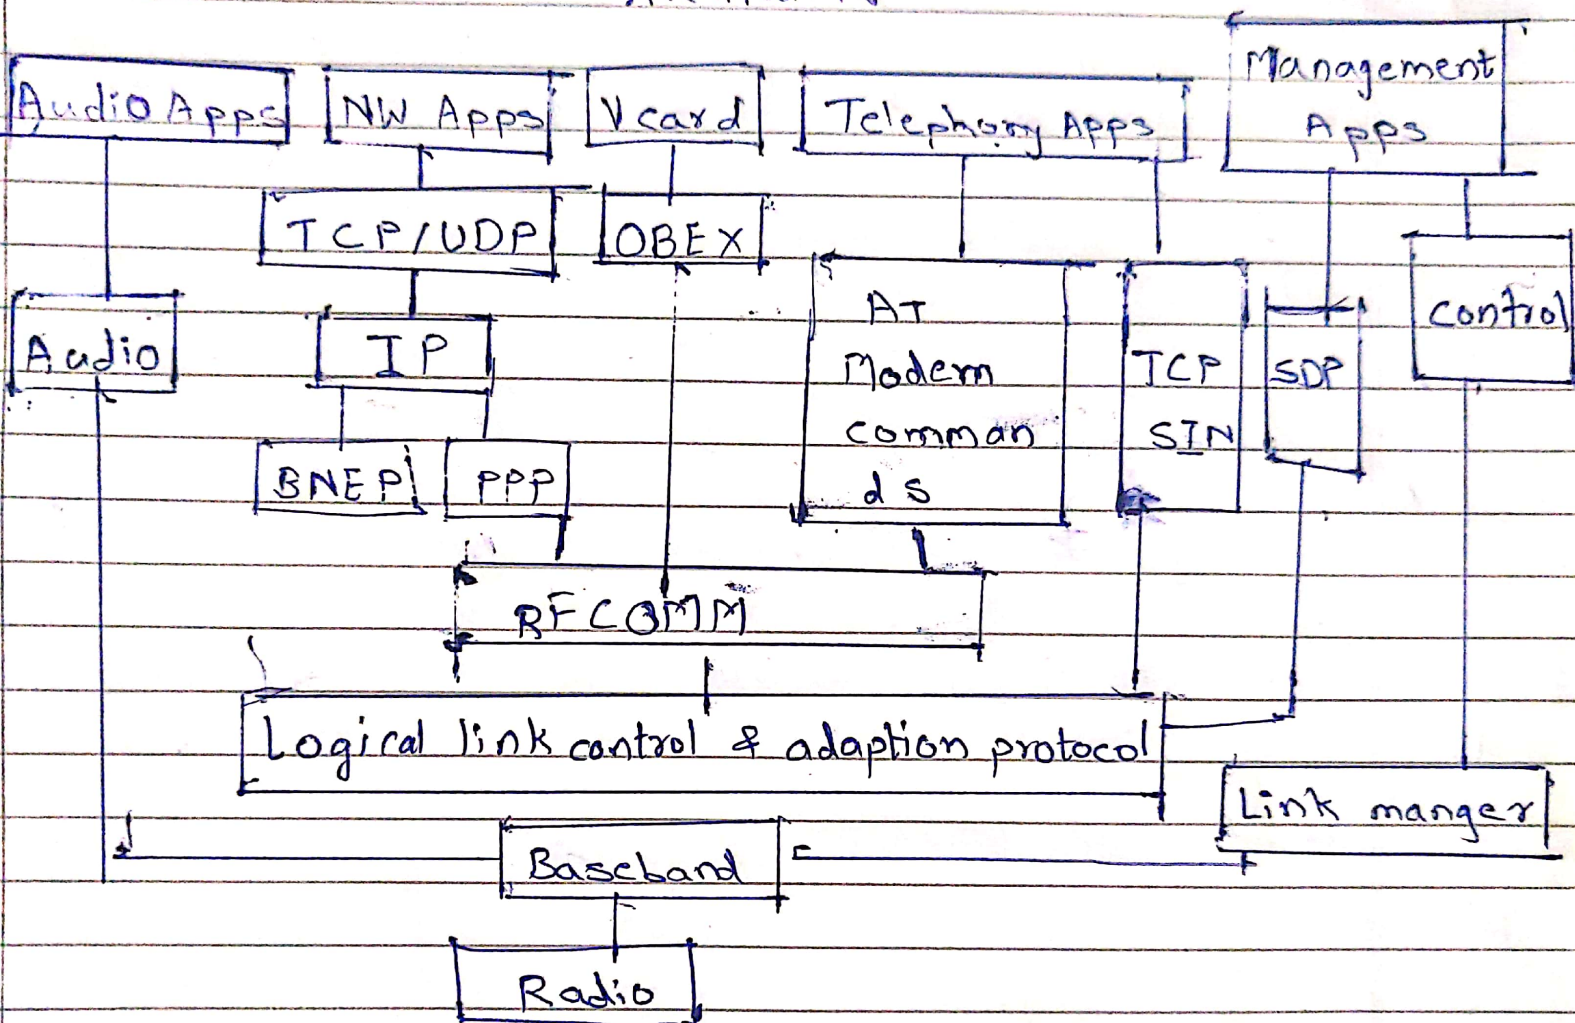 Audio Apps
NW Apps
Vcard
Telephony Apps
Management
Apps
TCP/UDP
OBEX
Audio
IP
AT
Modem
comman
ds
TCP
SIN
SDP
control
BNEP
PPP
RFCOMM
Logical link control & adaption protocol
Link manger
Baseband
Radio